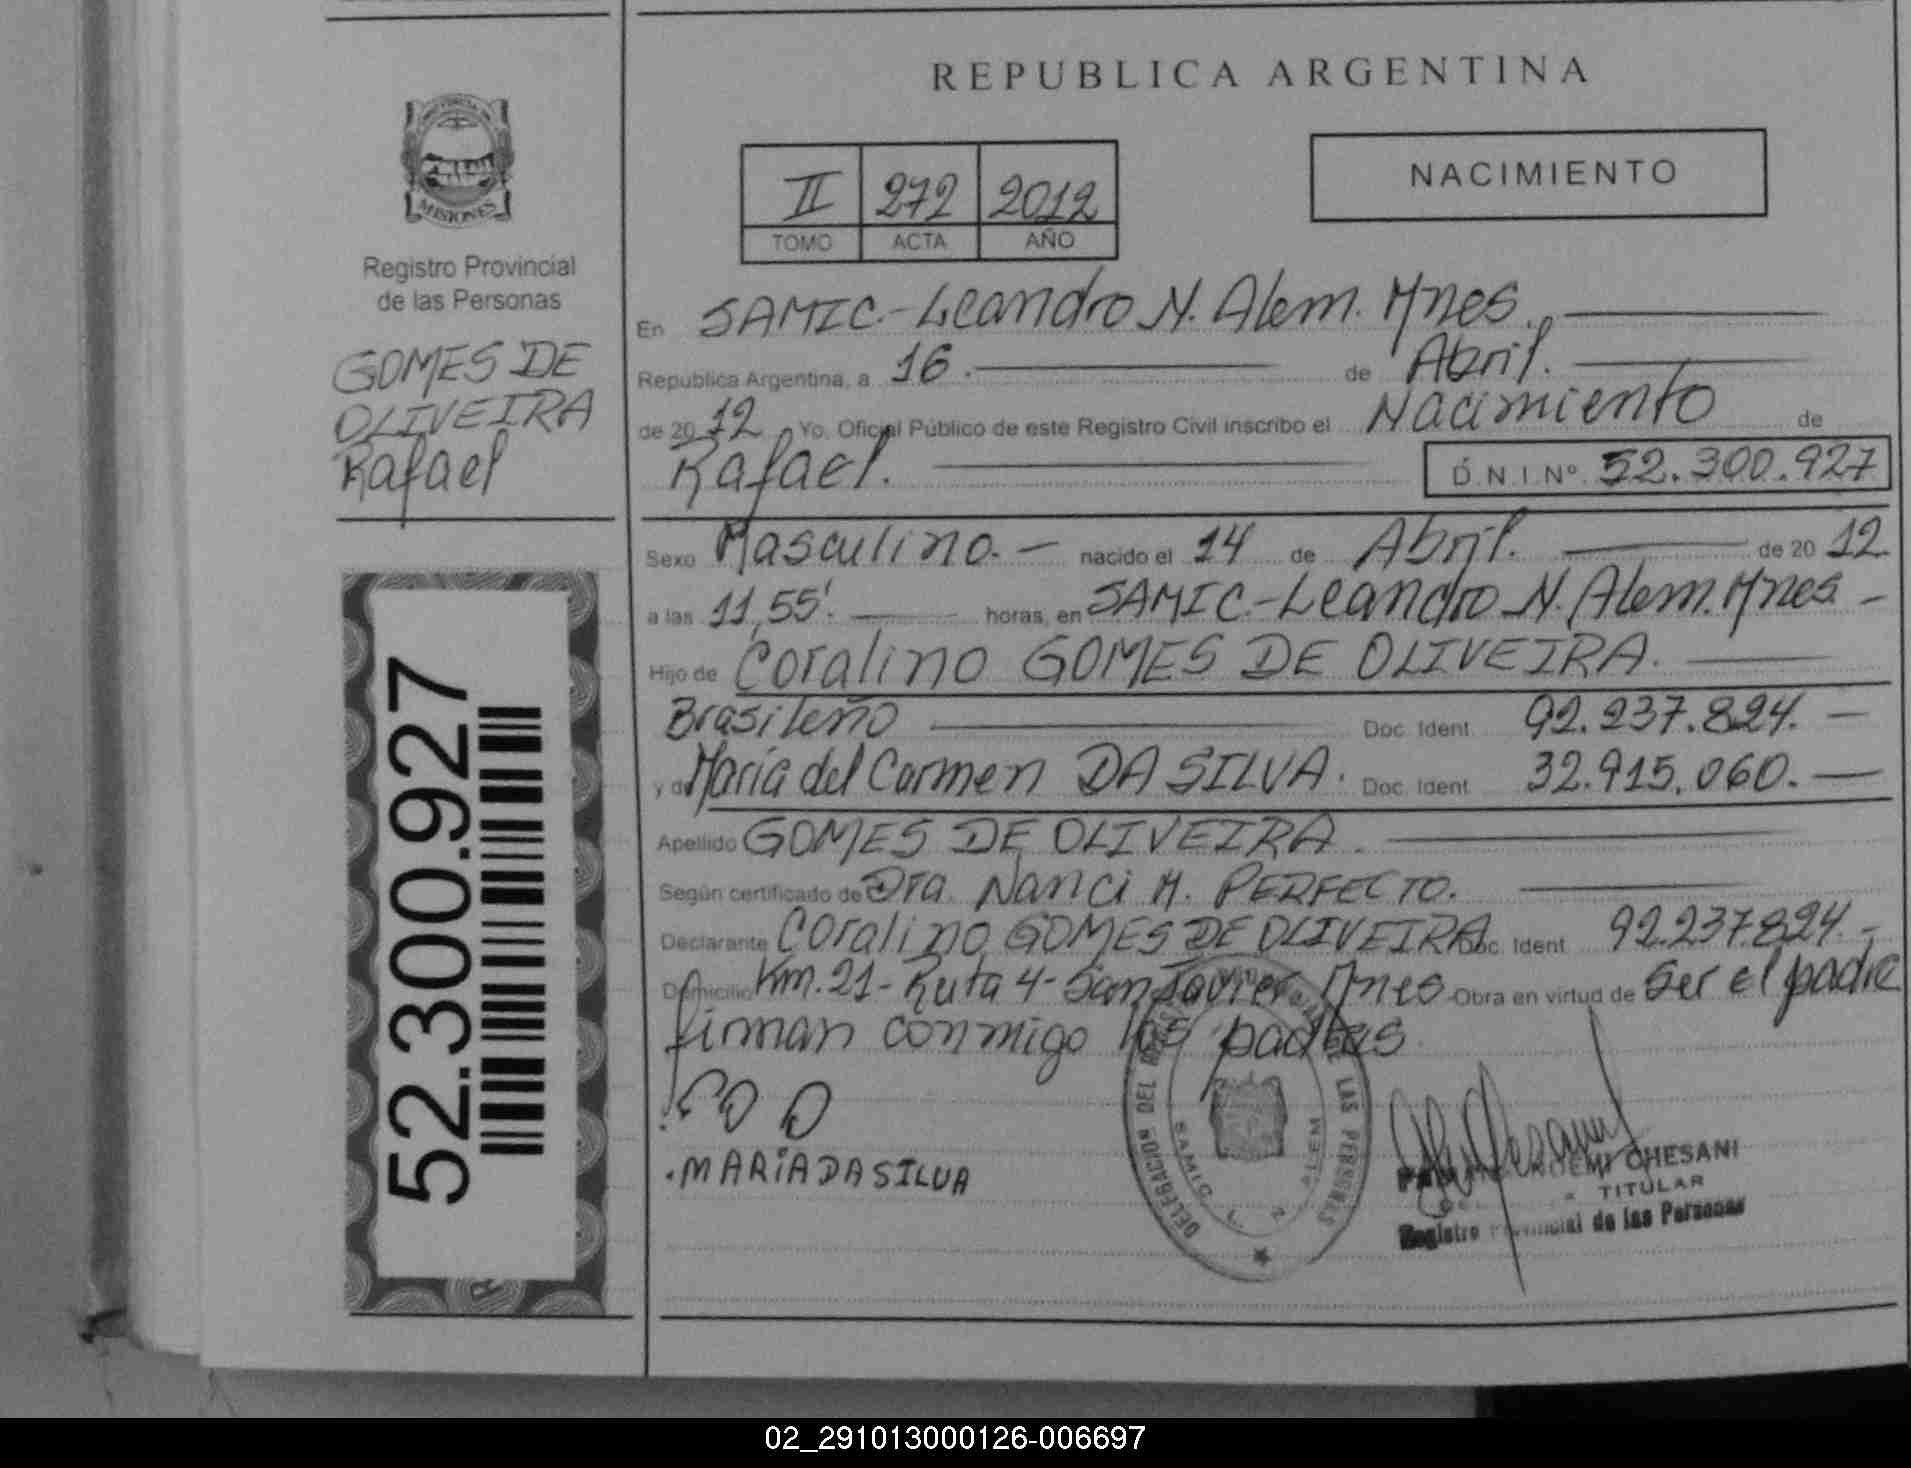 REPUBLICA ARGENTINA
PROVINCIA DE
MISIONES
Registro Provincial
de las Personas
GOMES DE
OLIVEIRA
Rafael
52.300.927
II 272 2012
TOMO ACTA AÑO
NACIMIENTO
En SAMIC.-Leandro N. Alem. Mnes.
Republica Argentina, a 16. de Abril.
de 2012 Yo, Oficial Público de este Registro Civil inscribo el Nacimiento de
Rafael. D.N.I.Nº 52.300.927
Sexo Masculino.- nacido el 14 de Abril. de 2012
a las 11,55'. horas, en SAMIC.-Leandro N. Alem. Mnes. -
Hijo de Coralino GOMES DE OLIVEIRA.
Brasileño Doc. Ident. 92.237.824.-
y de María del Carmen DA SILVA. Doc. Ident. 32.915.060.-
Apellido GOMES DE OLIVEIRA.
Según certificado de Dra. Nanci M. PERFECTO.
Declarante Coralino GOMES DE OLIVEIRA Doc. Ident. 92.237.824.-
Domicilio Km. 21 - Ruta 4 - San Javier Mnes Obra en virtud de Ser el padre
firman conmigo los padres
MARÍA DA SILVA
DELEGACION DEL LAS PERSONAS
SAMIC L. N. ALEM
NOEMI CHESANI
TITULAR
Registro Provincial de las Personas
02_291013000126-006697